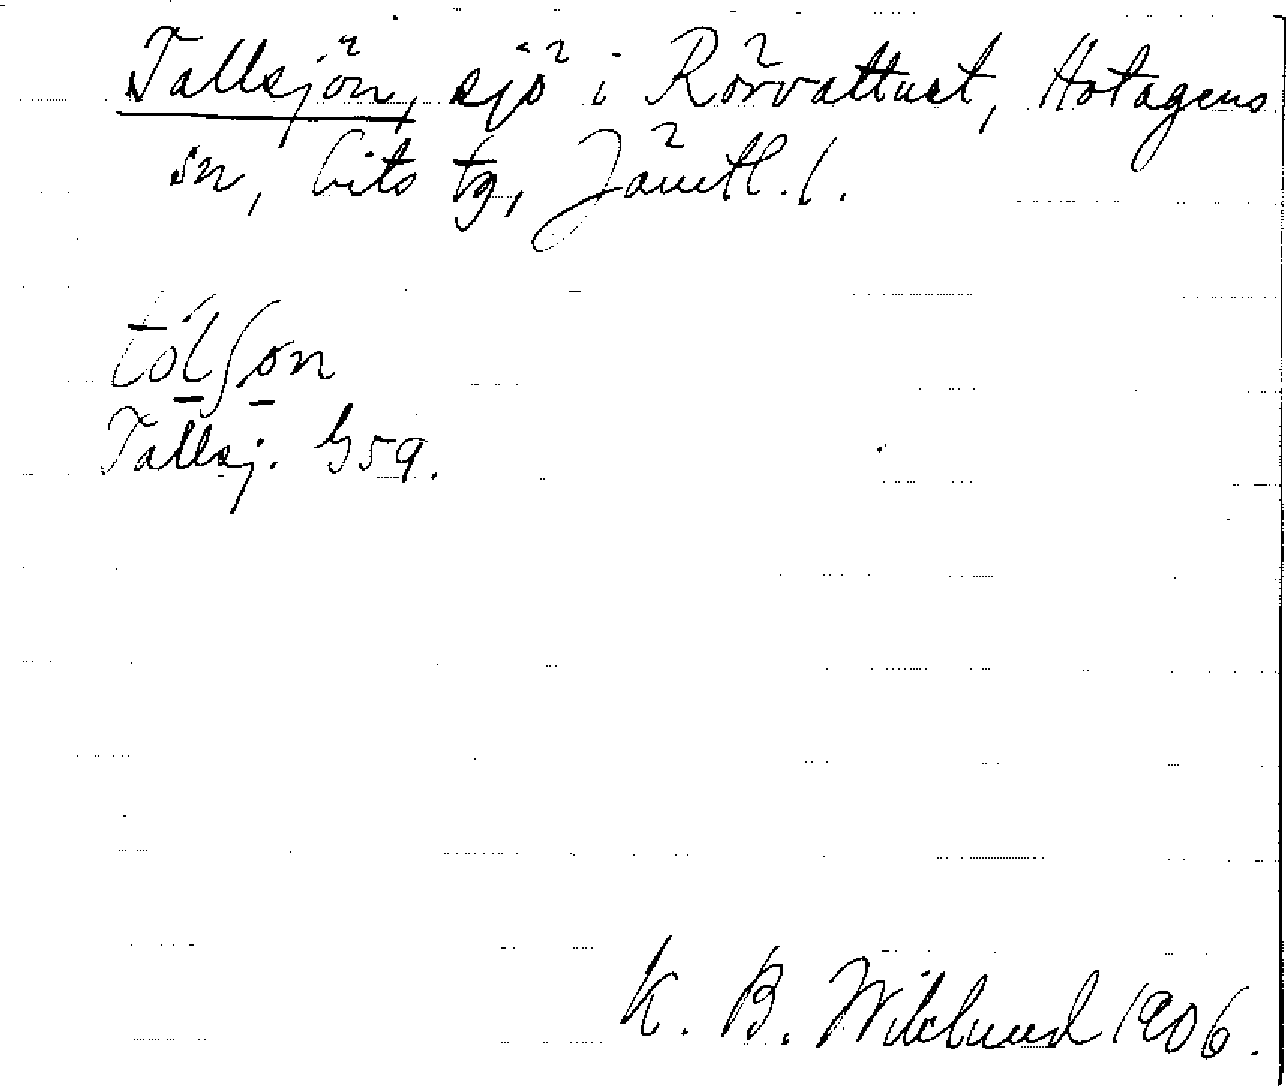 Tallsjön, sjö i Rörvattnet, Hotagens
sn, Lits tg, Jämtl. l.
tólʃon
Tallsj. G59.
K. B. Wiklund 1906.